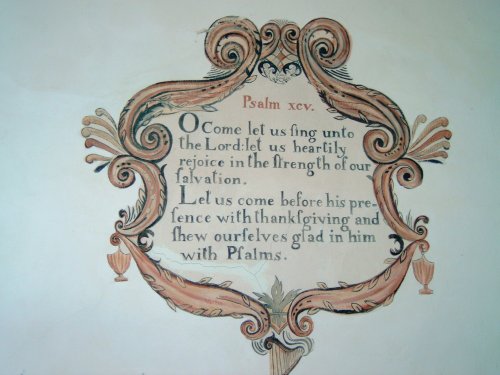 Psalm xcv.
O Come let us ſing unto
the Lord: let us heartily
rejoice in the ſtrength of our
ſalvation.
Let us come before his pre-
ſence with thankſgiving and
ſhew ourſelves glad in him
with Pſalms.